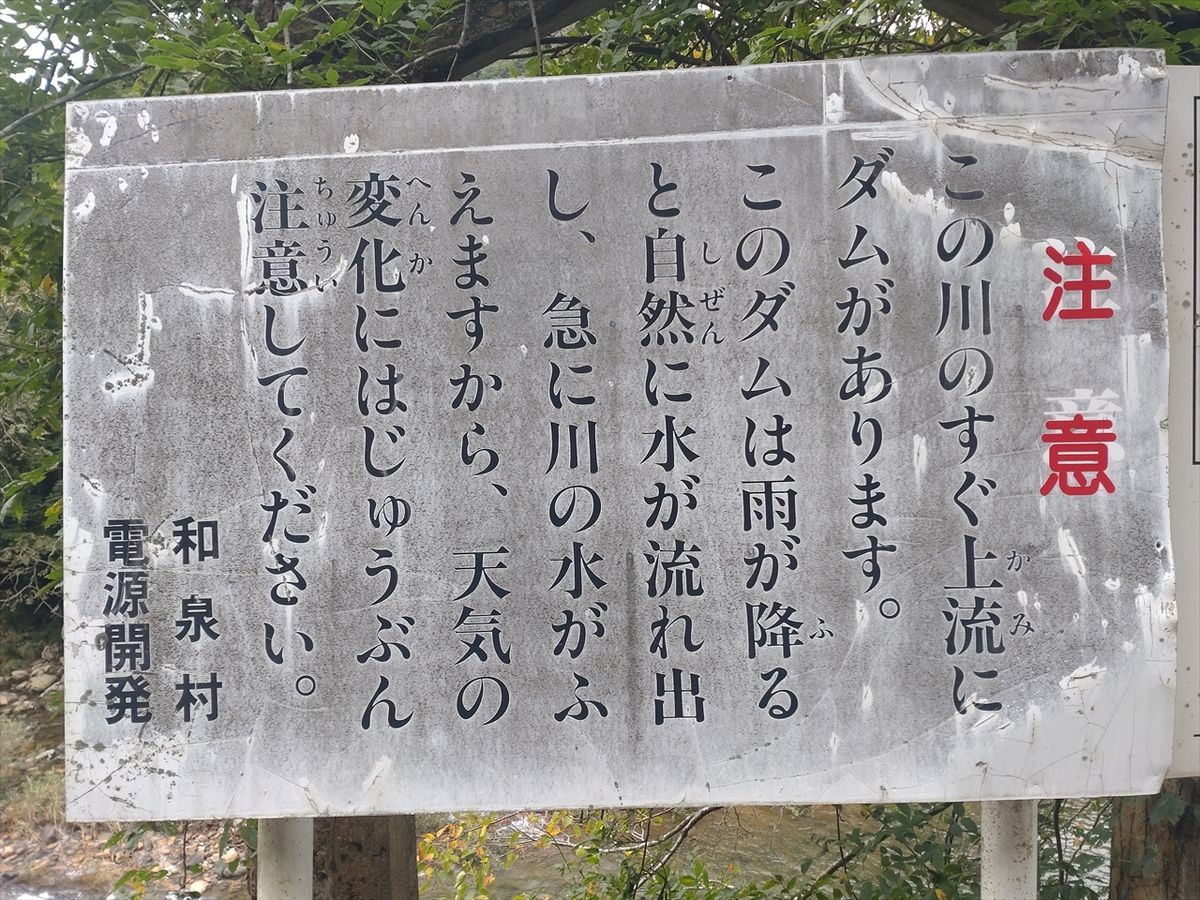 注意
この川のすぐ上流に
かみ
ダムがあります。
このダムは雨が降る
ふ
と自然に水が流れ出
しぜん
し、急に川の水がふ
えますから、天気の
変化にはじゅうぶん
へんか
注意してください。
ちゅうい
和泉村
電源開発